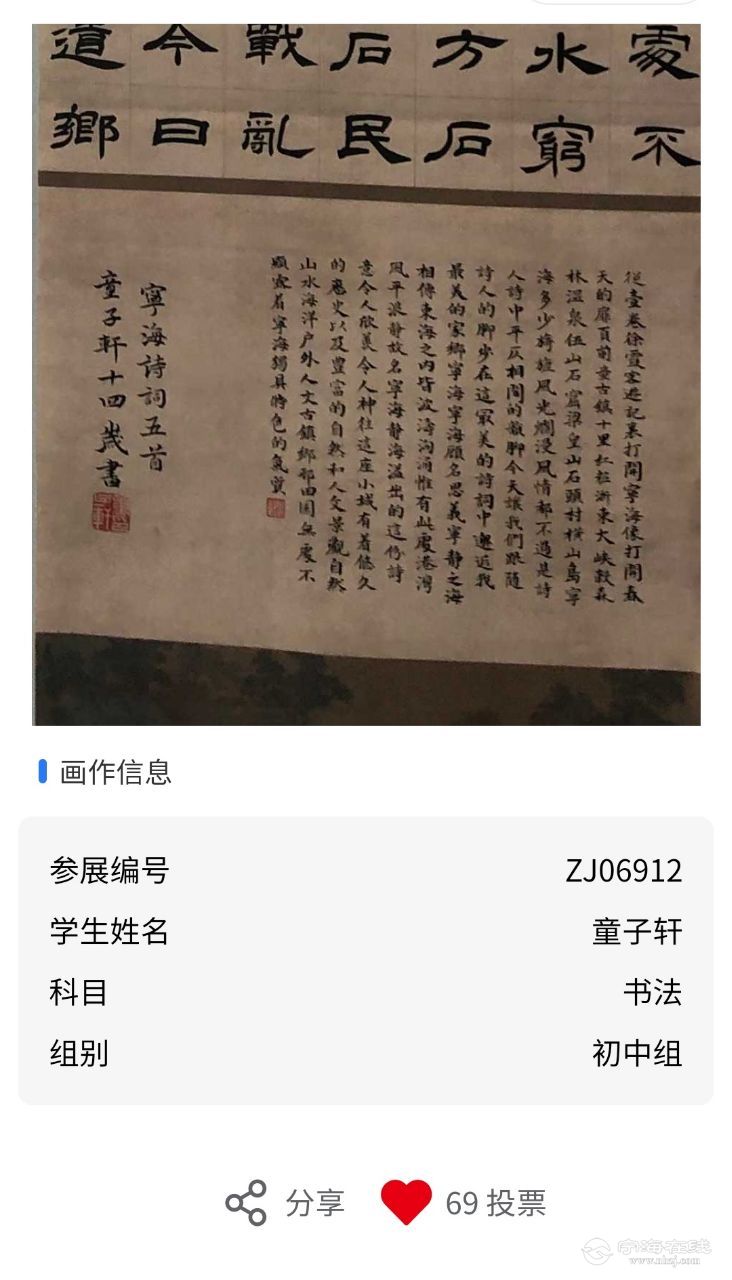 處不
水窮
方石
石民
戰亂
今日
道鄉
從壹卷徐霞客遊記裏打開寧海像打開春
天的扉頁前童古鎮十里紅妝浙東大峽穀森
林溫泉伍山石窟梁皇山石頭村橫山島寧
海多少旖旎風光爛漫風情都不過是詩
人詩中平仄相間的韻腳今天讓我們跟隨
詩人的腳步在這最美的詩詞中邂逅我
最美的家鄉寧海寧海顧名思義寧靜之海
相傳東海之內皆波濤洶涌惟有此處港灣
風平浪靜故名寧海靜海溢出的這份詩
意令人欣羨令人神往這座小城有着悠久
的歷史以及豐富的自然和人文景觀自然
山水海洋户外人文古鎮鄉邨田園無處不
顯露着寧海獨具特色的氣質
寧海詩詞五首
童子軒十四歲書
画作信息
参展编号 ZJ06912
学生姓名 童子轩
科目 书法
组别 初中组
分享 69 投票
宁海在线
www.nhzj.com